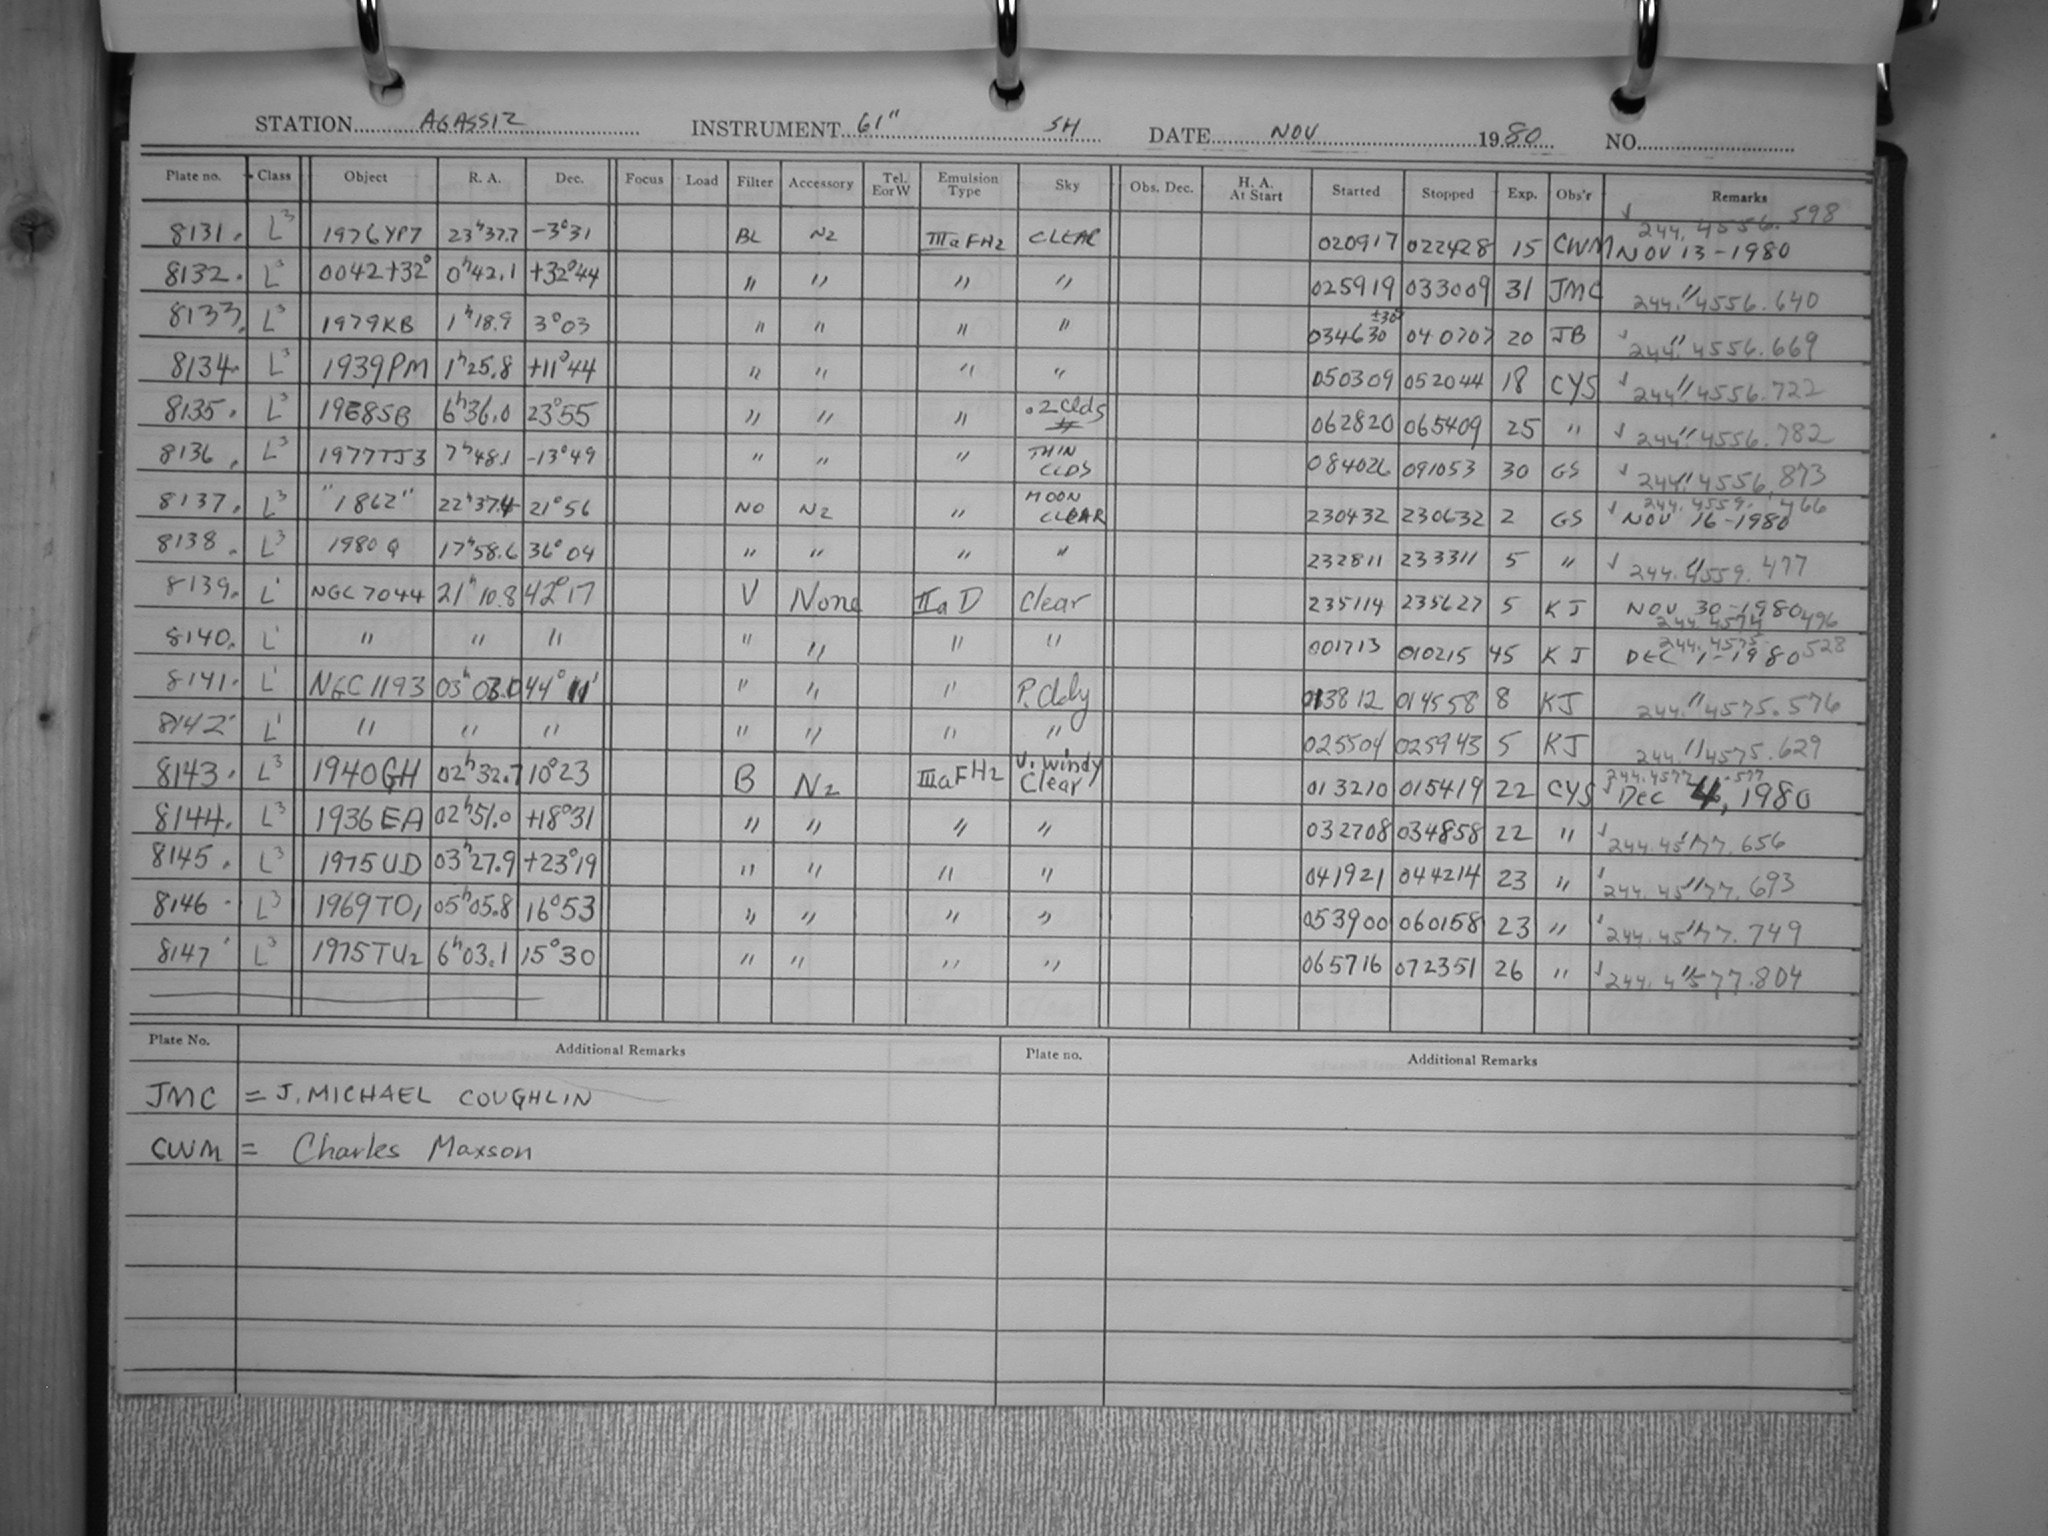 STATION AGASSIZ INSTRUMENT 61" SH DATE NOV 1980 NO.
Plate no. Class Object R. A. Dec. Focus Load Filter Accessory Tel. E or W Emulsion Type Sky Obs. Dec. H. A. At Start Started Stopped Exp. Obs'r Remarks
244.4556.598
8131. L3 1976YP7 23h37.7 -3°31 BL N2 IIIaFH2 CLEAR 020917 022428 15 CWM NOV 13-1980
8132. L3 0042+32° 0h42.1 +32°44 " " " " 025919 033009 31 JMC " 244.4556.640
8133. L3 1979KB 1h18.9 3°03 " " " " 034630 ±30s 040707 20 JB " 244.4556.669
8134. L3 1939PM 1h25.8 +11°44 " " " " 050309 052044 18 CYS " 244.4556.722
8135. L3 19E8SB 6h36.0 23°55 " " " .2 Clds 062820 065409 25 " " 244.4556.782
8136. L3 1977TJ3 7h48.1 -13°49 " " " THIN CLDS 084026 091053 30 GS " 244.4556.873
8137. L3 "1862" 22h37.4 21°56 NO N2 " MOON CLEAR 230432 230632 2 GS 244.4559.466 NOV 16-1980
8138. L3 1980 Q 17h58.6 36°04 " " " " 232811 233311 5 " " 244.4559.477
8139. L1 NGC7044 21h10.8 42°17 V None IIaD Clear 235114 235627 5 KJ NOV 30-1980 244.4574.496
8140. L1 " " " " " " " 001713 010215 45 KJ 244.4575.528 DEC 1-1980
8141. L1 NGC1193 03h03.0 44°11' " " " P. Cldy 013812 014558 8 KJ " 244.4575.576
8142 L1 " " " " " " " 025504 025943 5 KJ " 244.4575.629
8143. L3 1940GH 02h32.7 10°23 B N2 IIIaFH2 V. windy Clear 013210 015419 22 CYS 244.4577.577 Dec 4, 1980
8144. L3 1936EA 02h51.0 +18°31 " " " " 032708 034858 22 " " 244.4577.656
8145. L3 1975UD 03h27.9 +23°19 " " " " 041921 044214 23 " " 244.4577.693
8146 L3 1969TO1 05h05.8 16°53 " " " " 053900 060158 23 " " 244.4577.749
8147 L3 1975TU2 6h03.1 15°30 " " " " 065716 072351 26 " " 244.4577.804
Plate No. Additional Remarks Plate no. Additional Remarks
JMC = J. MICHAEL COUGHLIN
CWM = Charles Maxson